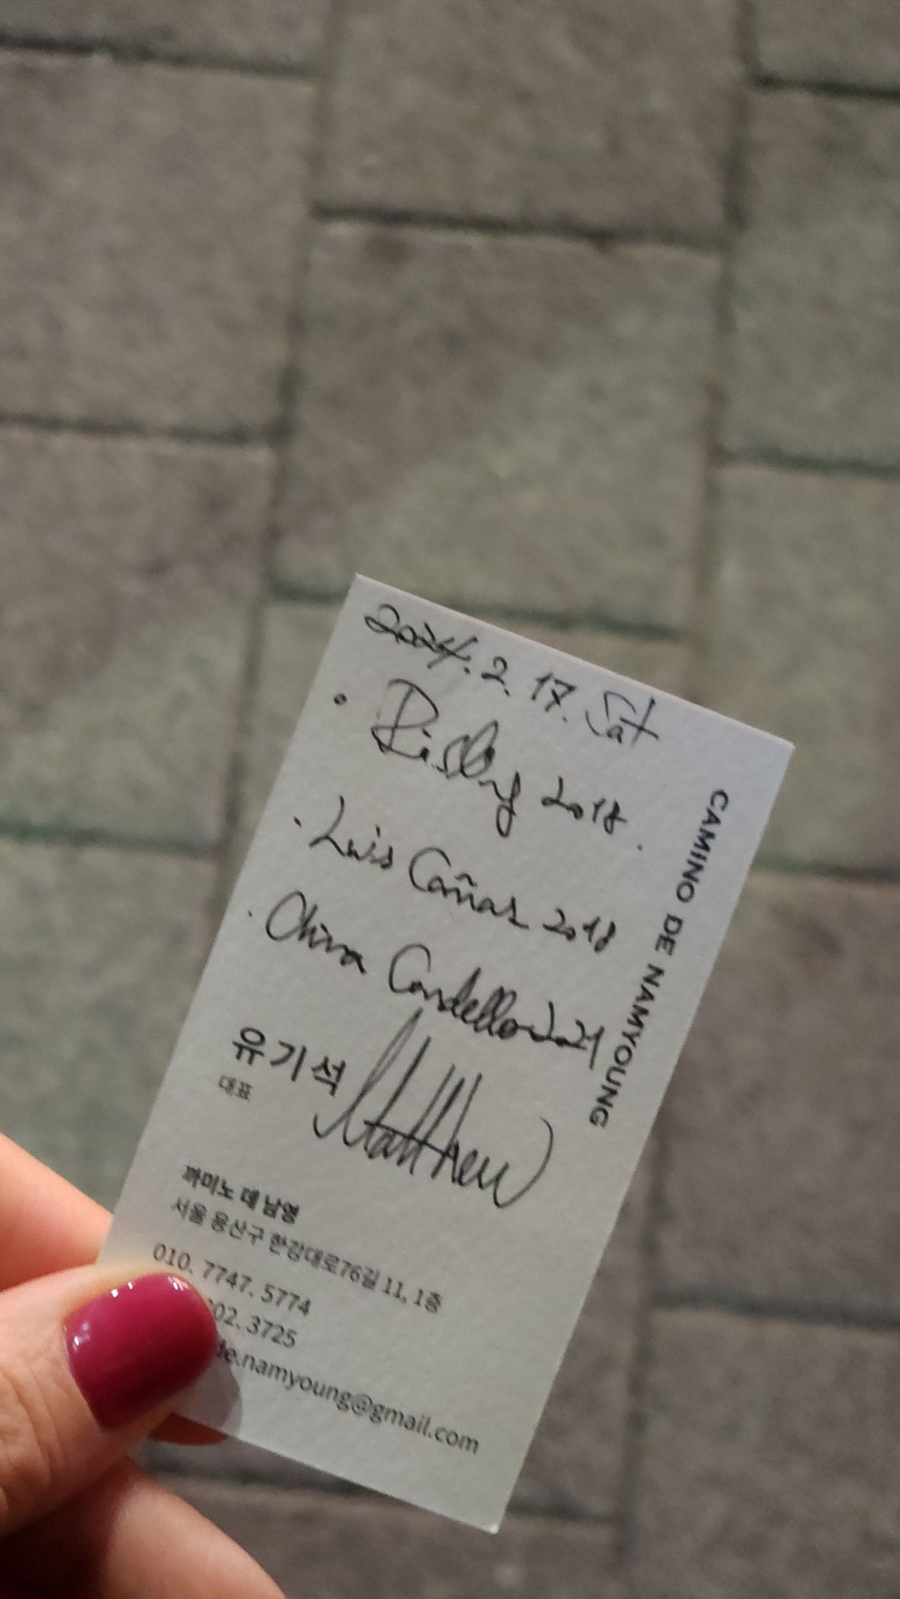 2024. 2. 17. Sat
• Riesling 2018.
· Luis Cañas 2018
· Chiva Condello 2021
CAMINO DE NAMYOUNG
유기석 Matthew
대표
까미노 데 남영
서울 용산구 한강대로76길 11, 1층
010. 7747. 5774
02. 3725
de.namyoung@gmail.com